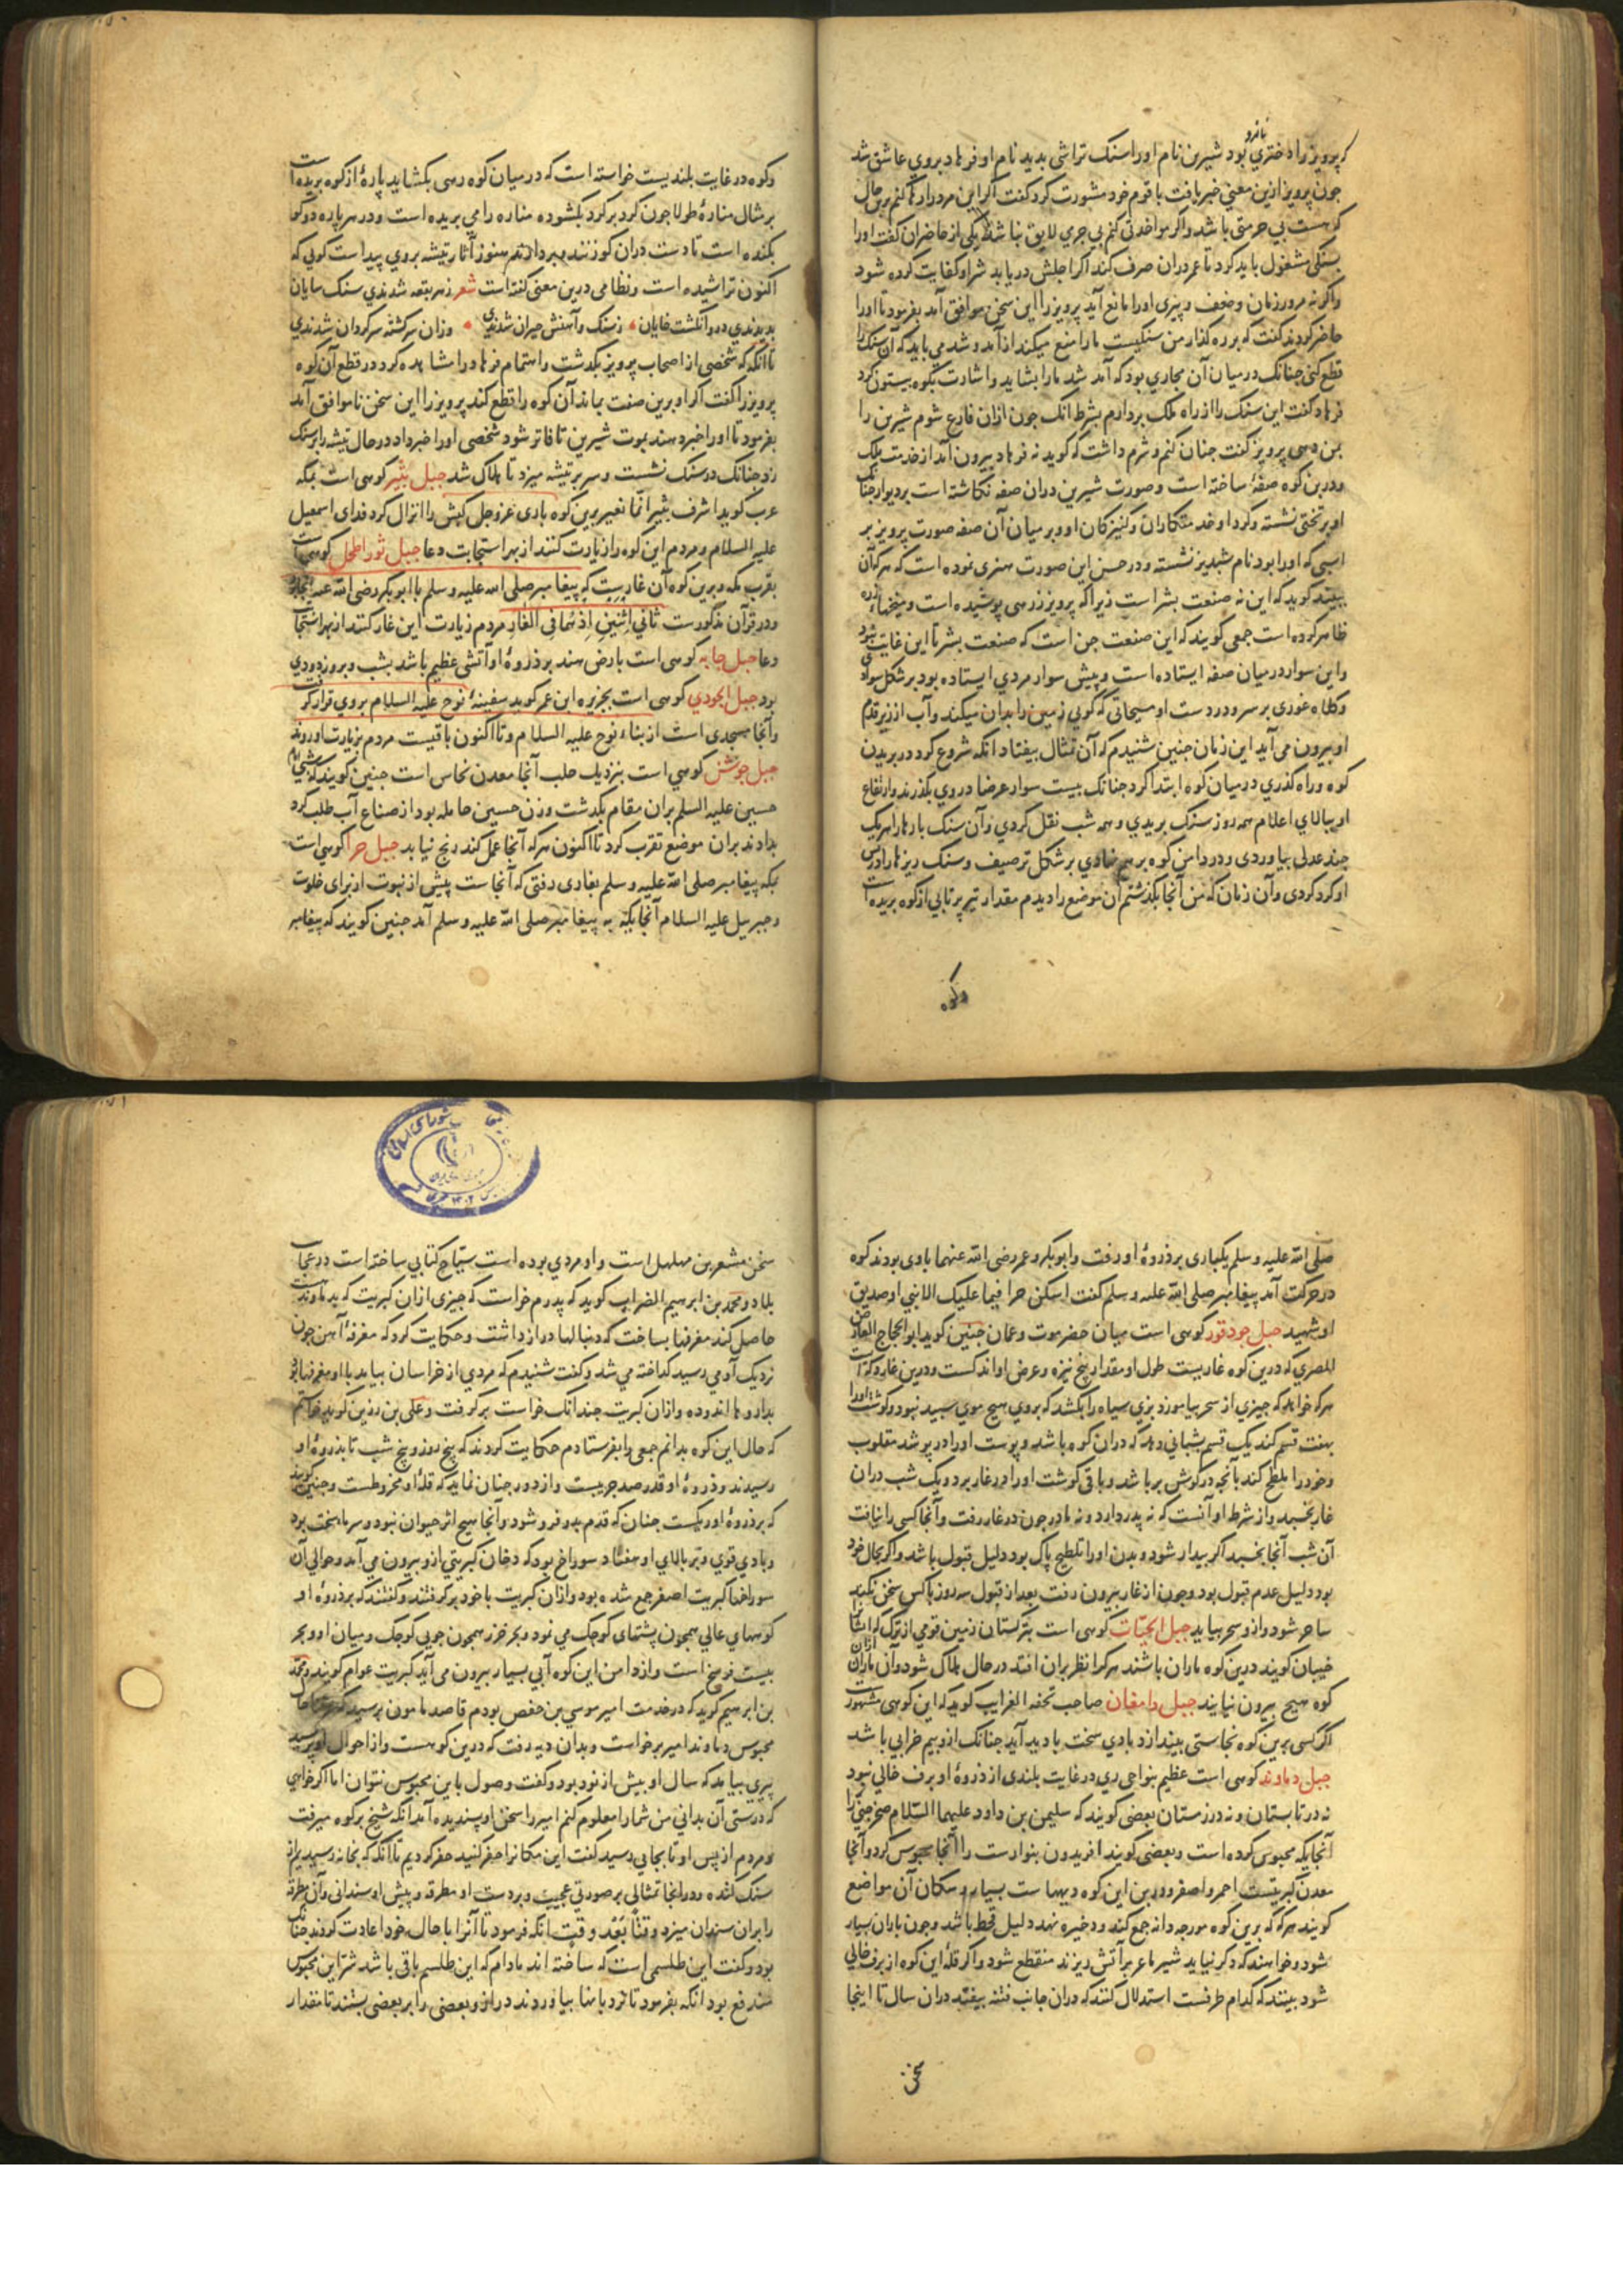 که پرویز را دختری بود شیرین نام اورا سنک تراشی بدید نام او فرهاد بروی عاشق شد
بانرو
چون پرویز ازین معنی خبر یافت با قوم خود مشورت کرد کفت اکر این مرد را رها کنم برین حال
که هست بی حرمتی باشد واکر مواخذتی کنم بی جرمی لایق نباشد یکی از حاضران کفت اورا
بسنکی مشغول باید کرد تا عمر دران صرف کند اکر اجلش دریابد شر او کفایت کرده شود
واکر نه مرور زمان وضعف وپیری اورا مانع آید پرویز را این سخن موافق آمد بفرمود تا اورا
حاضر کردند کفت که بر ره کذار من سنکیست مارا منع میکند از آمد و شد می باید که آن سنک را
قطع کنی چنانک درمیان آن مجاری بود که آمد شد مارا بشاید واشارت بکوه بیستون کرد
فرهاد کفت این سنک را از راه ملک بردارم بشرط انک چون ازان فارغ شوم شیرین را
بمن دهی پرویز کفت چنان کنم وشرم داشت که کوید نه فرهاد بیرون آمد از خدمت ملک
ودرین کوه صفهٔ ساخته است وصورت شیرین دران صفه نکاشته است بر دیوار چنانک
او بر تختی نشسته وکرد او خدمتکاران وکنیزکان او وبر میان آن صفه صورت پرویز بر
اسبی که اورا بود نام شبدیز نشسته ودر حسن این صورت هنری نموده است که هرکه آن
ببیند کوید که این نه صنعت بشر است زیرا که پرویز زرهی پوشیده است ومیخهاء زره
ظاهر کرده است جمعی کویند که این صنعت جن است که صنعت بشر تا این غایت نبود
واین سوار درمیان صفه ایستاده است وپیش سوار مردی ایستاده بود بر شکل سوادی
وکلاه غوری بر سر ودر دست او مسحاتی که کویی زمین را بدان میکند وآب از زیر قدم
او بیرون می آید این زمان چنین شنیدم که آن تمثال بیفتاد انکه شروع کرد در بریدن
کوه وراه کذری درمیان کوه ابتدا کرد چنانک بیست سوار عرضا در وی بکذرند وارتفاع
او ببالای اعلام همه روز سنک بریدی وهمه شب نقل کردی وآن سنک بارهارا هریک
چند عدلی بیاوردی ودر دامن کوه برهم نهادی بر شکل ترصیف وسنک ریزهارا در پس
او کرد کردی وآن زمان که من آنجا بکذشتم آن موضع را دیدم مقدار تیر پرتابی از کوه بریده است
وکوه
وکوه در غایت بلندیست خواسته است که درمیان کوه رهی بکشاید پارهٔ از کوه بریده است
بر شال منارهٔ طولا چون کرد بر کرد بکشوده مناره را می بریده است ودر هر پاره دو کو
بکنده است تا دست دران کو زنند وبردارند هنوز آثار تیشه بروی پیداست کویی که
اکنون تراشیده است ونظامی درین معنی کفته است شعر زهر بقعه شدندی سنک سایان
بدیدندی درو انکشت خایان ز سنک وآهنش حیران شدندی وزان سرکشته سرکردان شدندی
تا انکه که شخصی از اصحاب پرویز بکدشت واهتمام فرهاد را مشاهده کرد در قطع آن کوه
پرویز را کفت اکر او برین صنعت بماند آن کوه را قطع کند پرویز را این سخن ناموافق آمد
بفرمود تا اورا خبر دهند بموت شیرین تا فاتر شود شخصی اورا خبر داد درحال تیشه را بر سنک
زد چنانک در سنک نشست وسر بر تیشه میزد تا هلاک شد جبل ثبیر کوهی است بمکه
عرب کوید اشرف ثبیر انما نغیر برین کوه باری عزوجل کبش را انزال کرد فدای اسمعیل
علیه السلام ومردم این کوه را زیارت کنند از بهر استجابت دعا جبل ثور اطحل کوهی است
بقرب مکه وبرین کوه آن غاریست که پیغامبر صلی الله علیه وسلم با ابوبکر رضی الله عنه آنجا
ودر قرآن مذکورست ثانی اثنین اذ هما فی الغار مردم زیارت این غار کنند از بهر استجابت
دعا جبل جابه کوهی است بارض هند بر ذروهٔ او آتشی عظیم باشد بشب وبروز دودی
بود جبل الجودی کوهی است بجزیره ابن عمر کوید سفینهٔ نوح علیه السلام بروی قرار کرفت
وآنجا مسجدی است از بناء نوح علیه السلام وتا اکنون باقیست مردم بزیارت او روند
جبل جوشن کوهی است بنزدیک حلب آنجا معدن نحاس است چنین کویند که
حسین علیه السلم بران مقام بکدشت وزن حسین حامله بود از صناع آب طلب کرد
ندادند بران موضع تقرب کرد تا اکنون هرکه آنجا عمل کند رنج نیابد جبل حرا کوهی است
بمکه پیغامبر صلی الله علیه وسلم بغاری رفتی که آنجاست پیش از نبوت از برای خلوت
وجبریل علیه السلام آنجایکه به پیغامبر صلی الله علیه وسلم آمد چنین کویند که پیغامبر
صلی الله علیه وسلم یکباری بر ذروهٔ او رفت وابوبکر وعمر رضی الله عنهما باوی بودند کوه
در حرکت آمد پیغامبر صلی الله علیه وسلم کفت اسکن حرا فیما علیک الا نبی او صدیق
او شهید جبل جودقور کوهی است میان حضرموت وعمان چنین کوید ابو الحجاج
المصری که درین کوه غاریست طول او مقدار پنج نیزه وعرض او اندکست ودرین غار
هرکه خواهد که چیزی از سحر بیاموزد بزی سیاه را بکشد که بروی هیچ موی سپید نبود وکوشت اورا
بهفت قسم کند یک قسم بشبانی دهد که دران کوه باشد وپوست اورا در پوشد مقلوب
وخود را ملطخ کند بآنچه در کوش بر باشد وباقی کوشت اورا در غار برد ویک شب دران
غار بخسبد واز شرط او آنست که نه پدر دارد ونه مادر چون در غار رفت وآنجا کسی را نیافت
آن شب آنجا بخسبد اکر بیدار شود وبدن اورا تلطیخ پاک بود دلیل قبول باشد واکر بحال خود
بود دلیل عدم قبول بود وچون از غار بیرون رفت بعد از قبول سه روز با کس سخن نکوید
ساحر شود واز وسحر بیاید جبل الحیات کوهی است بترکستان زمین قومی از ترک که ایشانرا
خیبان کویند درین کوه ماران باشند هرکرا نظر بران افتد درحال هلاک شود وآن ماران ازان
کوه هیچ بیرون نیایند جبل دامغان صاحب تحفه الغرایب کوید که این کوهی مشهور است
اکر کسی برین کوه نجاستی بیندازد بادی سخت بادید آید چنانک ازو بیم خرابی باشد
جبل دماوند کوهی است عظیم بنواحی ری در غایت بلندی از ذروهٔ او برف خالی نبود
نه در تابستان ونه در زمستان بعضی کویند که سلیمن بن داود علیهما السلام صخر جنی را
آنجایکه محبوس کرده است وبعضی کویند افریدون بنوارست را آنجا محبوس کرد وآنجا
معدن کبریتست احمر واصفر ودرین این کوه دیههاست بسیار وسکان آن مواضع
کویند هرکه که برین کوه مورچه دانه جمع کند وذخیره نهد دلیل قحط باشد وچون باران بسیار
شود وخواهند که دکر نیاید شیر ماعز بر آتش ریزند منقطع شود واکر قلهٔ این کوه از برف خالی
شود ببینند که کدام طرفست استدلال کنند که دران جانب فتنه بیفتد دران سال تا اینجا
سخن
سخن مشعر بن مهلهل است واو مردی بوده است سیاح کتابی ساخته است در عجایب
بلاد ومحمد بن ابرهیم الضراب کوید که پدرم خواست که چیزی ازان کبریت که بدماوندست
حاصل کند مغرفها بساخت که دنبالها دراز داشت وحکایت کرد که مغرفهٔ آهن چون
نزدیک او می رسید کداخته می شد وکفت شنیدم که مردی از خراسان بیامد با او مغرفها بود
بداروها اندوده وازان کبریت چندانک خواست برکرفت وعلی بن رزین کوید خواستم
که حال این کوه بدانم جمعی را بفرستادم حکایت کردند که پنج روز وپنج شب تا بذروهٔ او
رسیدند وذروهٔ او قدر صد جریبست واز دور چنان نماید که قلهٔ او مخروطست وچنین کویند
که بر ذروهٔ او ریکست چنان که قدم بدو فرو شود وآنجا هیچ اثر حیوان نبود وسرما سخت بود
وبادی قوی وبر بالای او هفتاد سوراخ بود که دخان کبریتی ازو بیرون می آید وحوالی آن
سوراخها کبریت اصفر جمع شده بود وازان کبریت با خود برکرفتند وکفتند که بر ذروهٔ او
کوههای عالی همچون پشتهای کوچک می نمود وبحر خزر همچون جویی کوچک ومیان او وبحر
بیست فرسخ است واز دامن این کوه آبی بسیار بیرون می آید کبریت عوام کویند ومحمد
بن ابرهیم کوید که در خدمت امیر موسی بن حفص بودم قاصد مامون برسید
محبوس دماوند امیر برخواست وبدان دیه رفت که درین کوهست واز احوال او پرسید
پیری بیامد که سال او بیش از نود بود وکفت وصول باین محبوس نتوان اما اکر خواهی
که درستی آن بدانی من شمارا معلوم کنم امیر را سخن او پسندیده آمد انکه شیخ بر کوه میرفت
ومردم از پس او تا بجایی رسید کفت این مکانرا حفر کنید حفر کردیم تا انکه که بخانه رسیدیم از
سنک کنده ودر انجا تمثالی بر صورتی عجیب وبر دست او مطرقه وپیش او سندانی وآن مطرقه
را بران سندان میزد وقتا بعد وقت انکه فرمود تا آنرا باحال خود اعادت کردند چنانک
بود وکفت این طلسمی است که ساخته اند مادام که این طلسم باقی باشد شر این محبوس
مندفع بود انکه بفرمود تا نردبانها بیاوردند دراز وبعضی را بر بعضی بستند تا مقدار